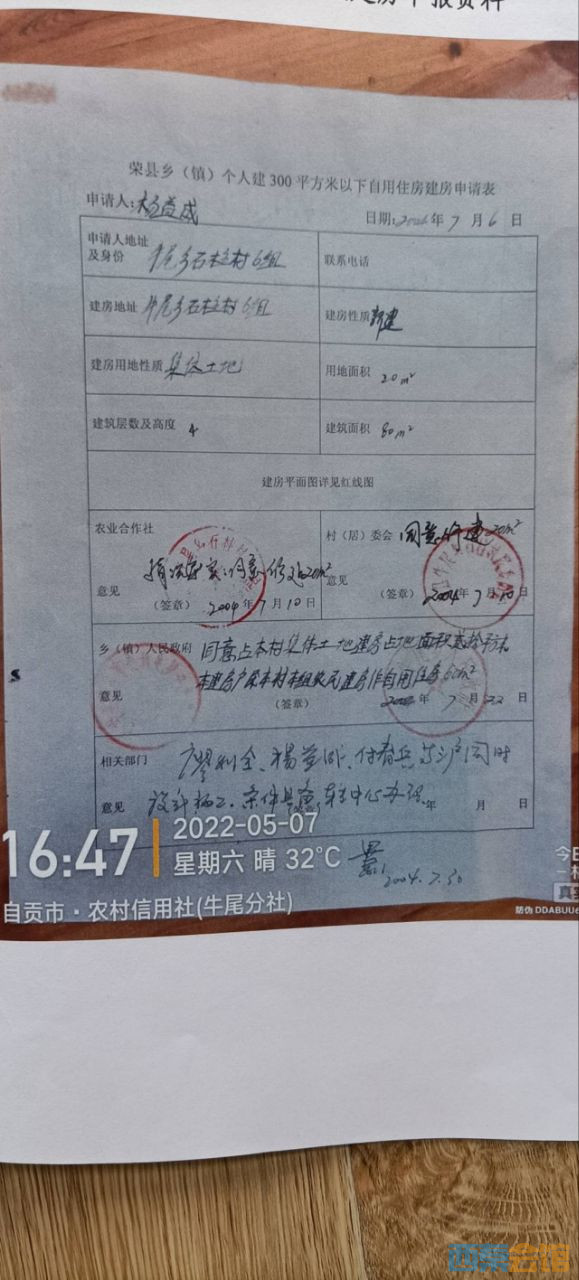 报资料
荣县乡（镇）个人建300平方米以下自用住房建房申请表
申请人：杨益成
日期：2004年7月6日
申请人地址及身份 牛尾乡石柱村6组
联系电话
建房地址 牛尾乡石柱村6组
建房性质 新建
建房用地性质 集体土地
用地面积 20m²
建筑层数及高度 4
建筑面积 80m²
建房平面图详见红线图
农业合作社
情况属实,同意修建20m²
意见
（签章） 2004年7月10日
村（居）委会 同意修建20m²
意见
（签章） 2004年7月10日
乡（镇）人民政府 同意占本村集体土地建房占地面积贰拾平方米
本建房户属本村本组农民建房作自用住房60m²
意见
（签章） 年7月22日
相关部门
同时
意见
年 月 日
2004.7.30
16:47
2022-05-07
星期六 晴 32°C
自贡市·农村信用社(牛尾分社)
今日
真实
防伪 DDABUU6
西茶会馆